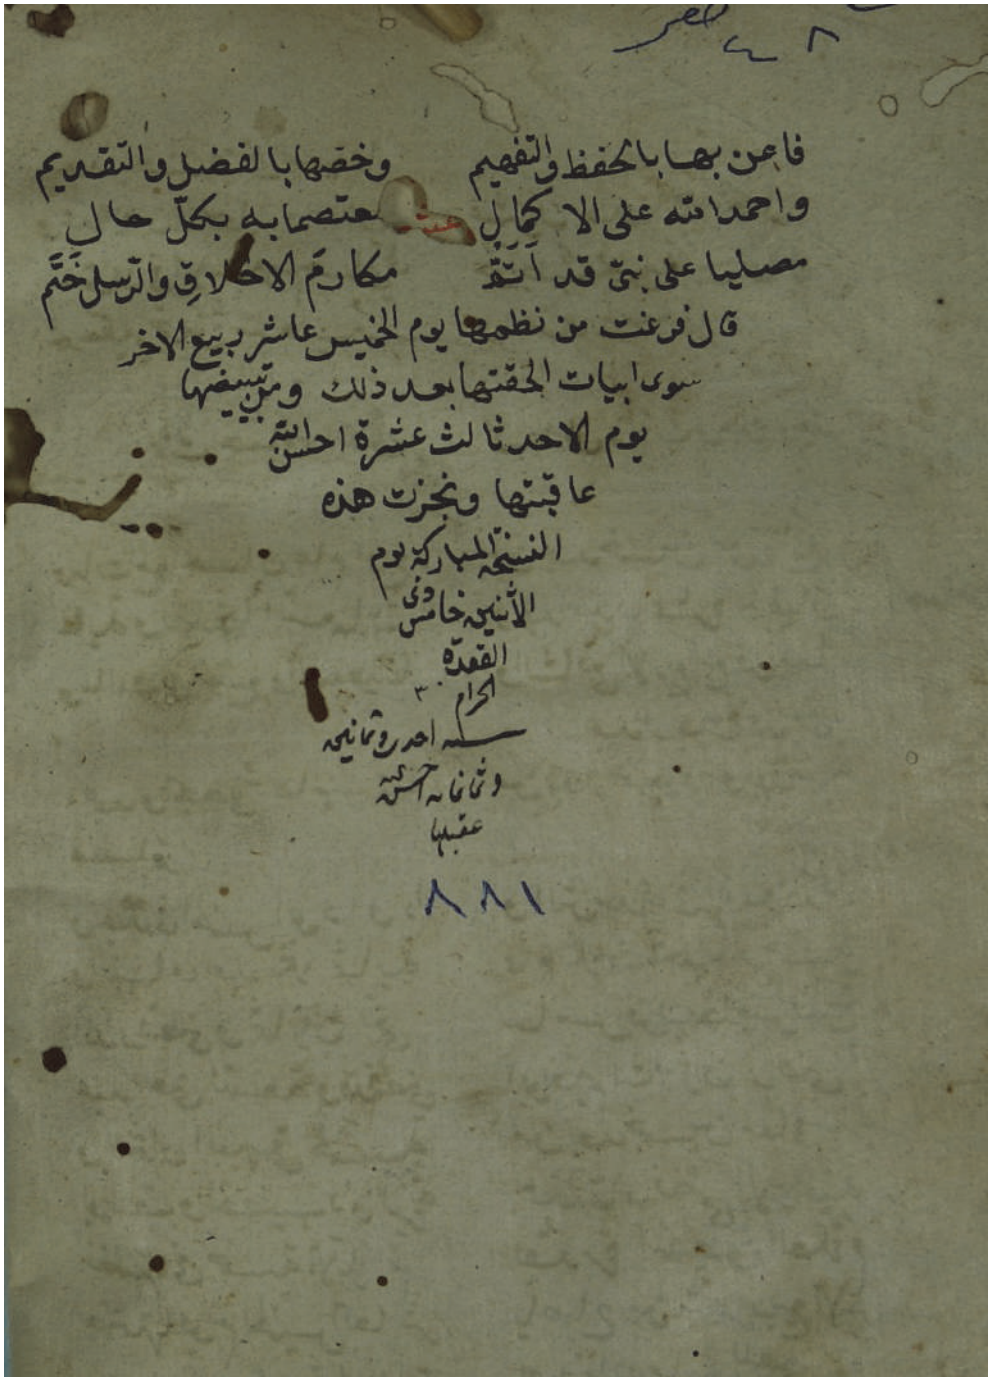 ٨
فاعن بها بالحفظ والتفهيم وخصها بالفضل والتقديم
واحمد الله على الاكمال معتصما به بكلّ حال
مصليا على نبيّ قد اَتَمَّ مكارمَ الاخلاقِ والرّسل خَتَم
قال فرغت من نظمها يوم الخميس عاشر ربيع الاخر
سوى ابيات الحقتها بعد ذلك ومن تبييضها
يوم الاحد ثالث عشرة احسن الله
عاقبتها ونجزت هذه
النسخة المباركة يوم
الاثنين خامس
القعدة
الحرام
سنة احدى وثمانين
وثمانمائة احسن الله
عقبها
٨٨١